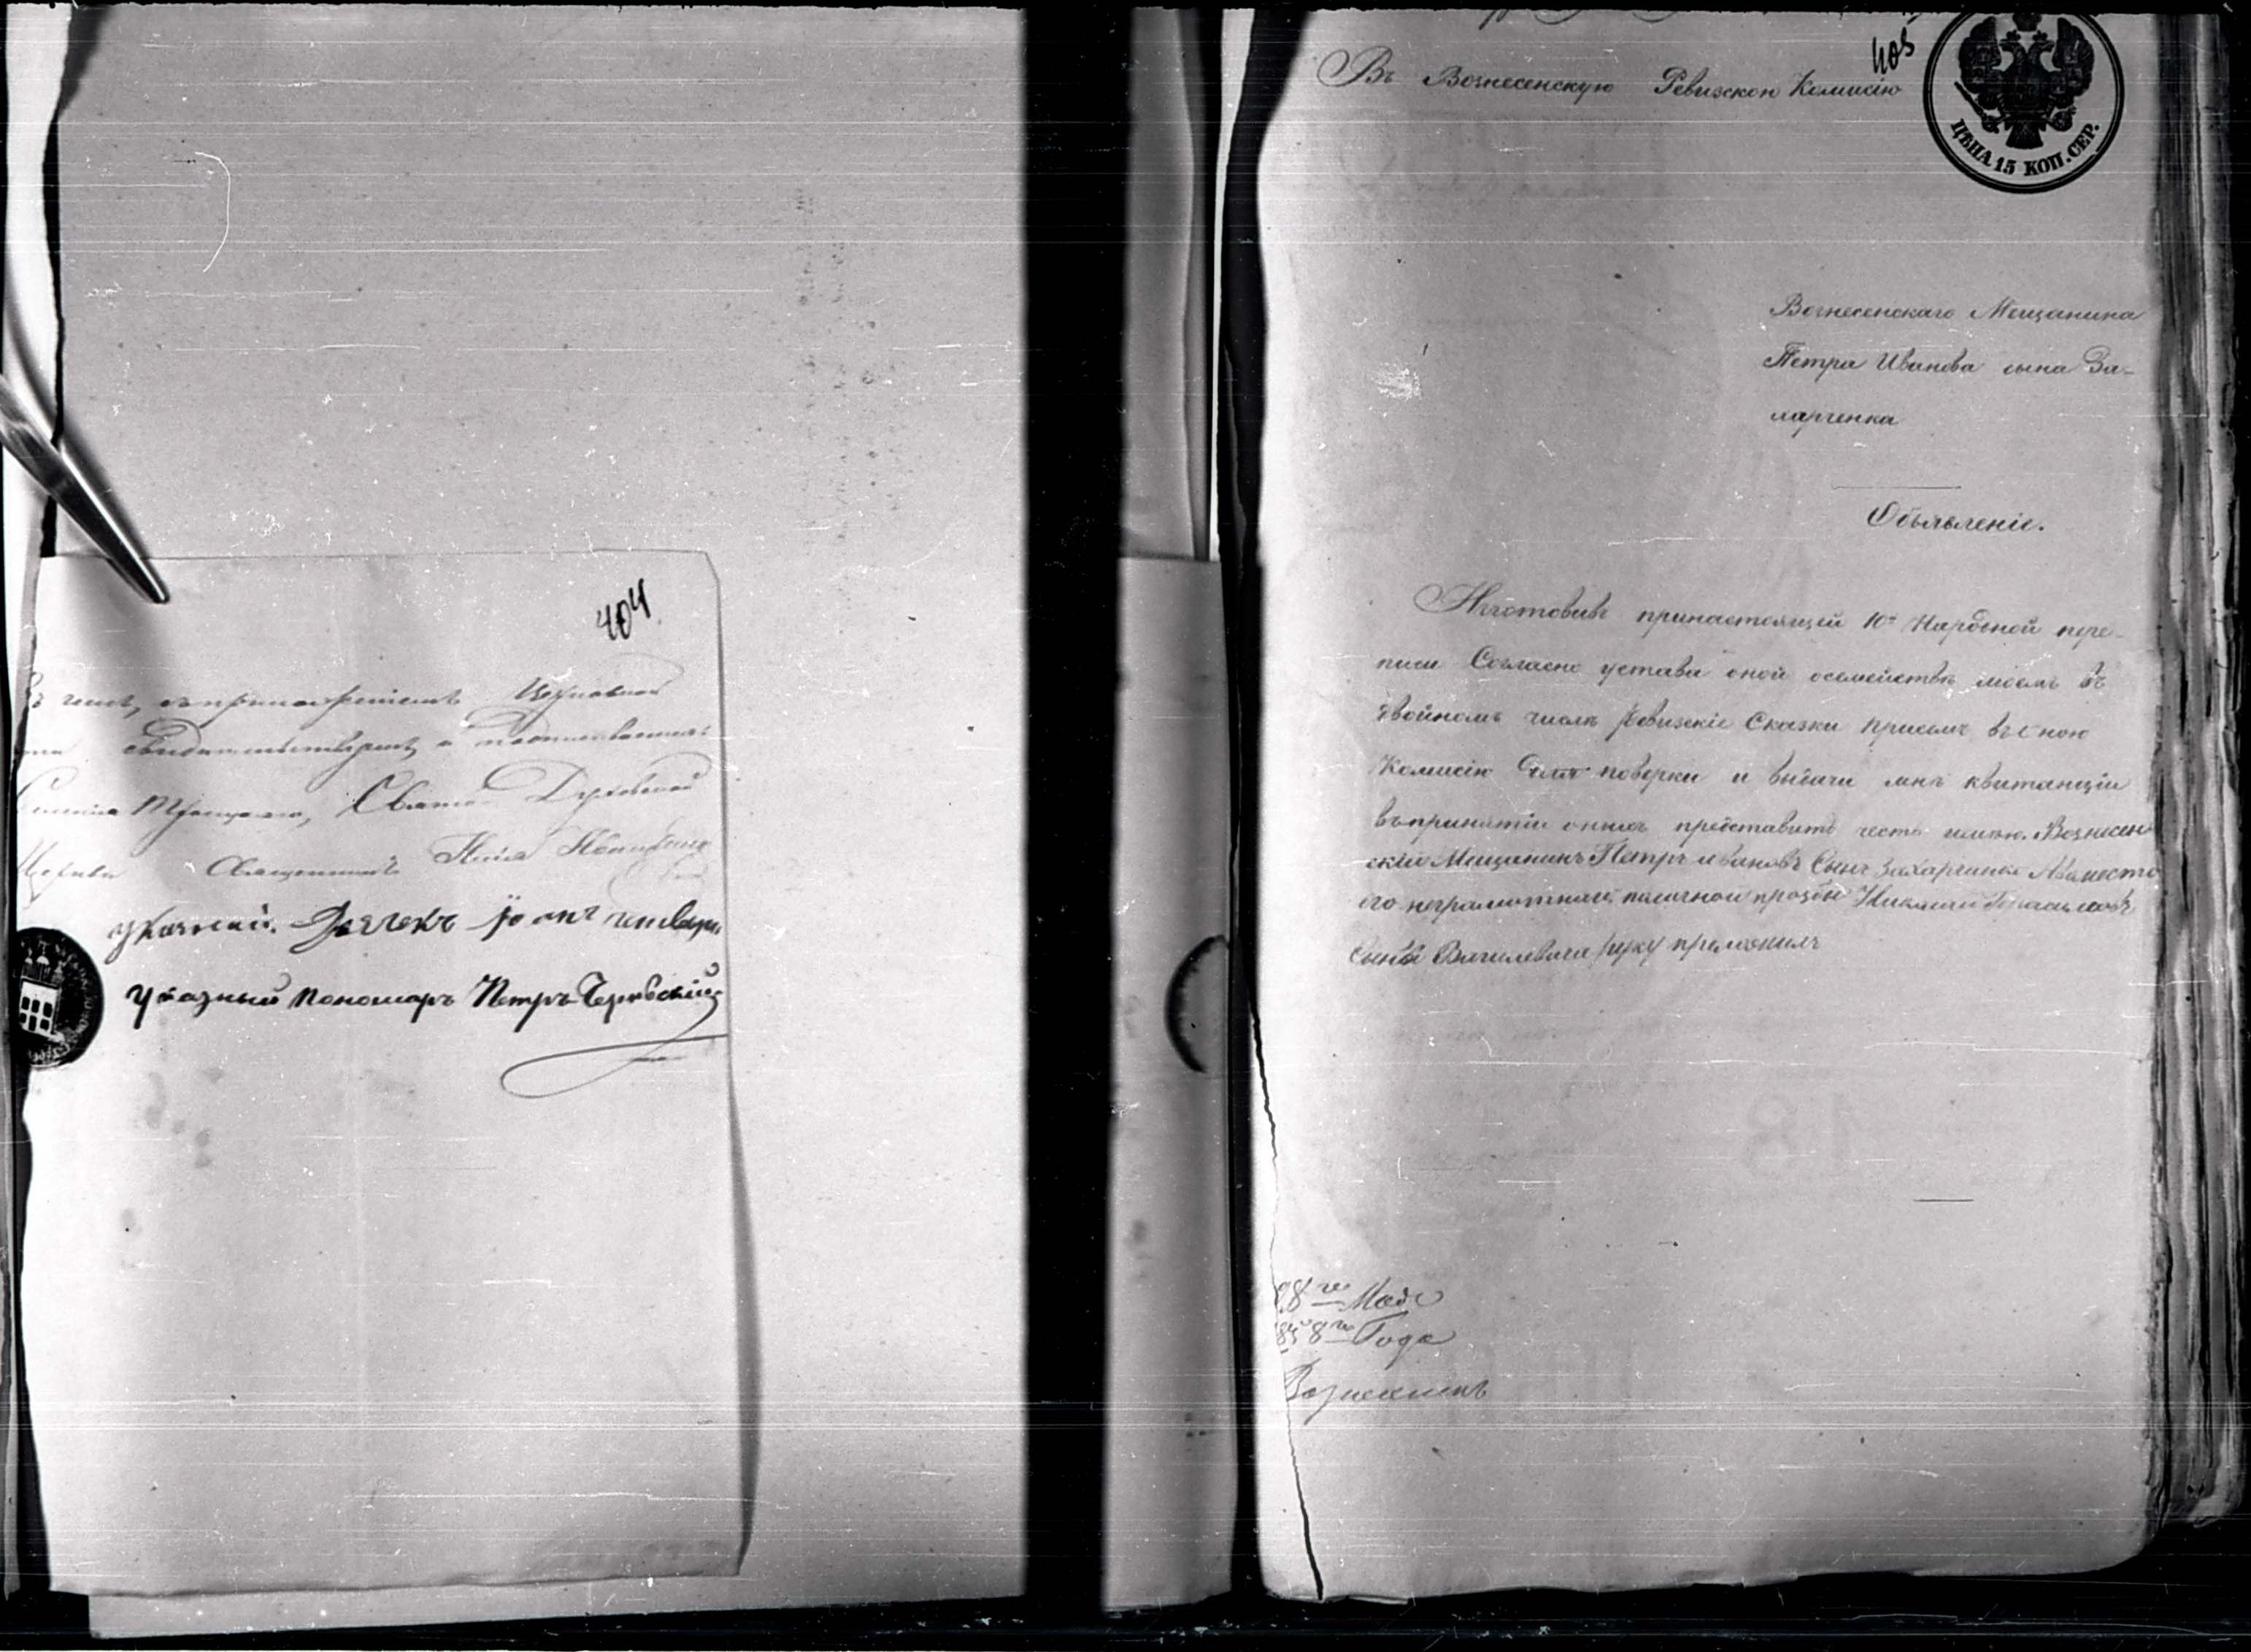 404
свидетельствуетъ, а подписываемъ
Троицкаго, Свято Духовской
Церкви Священникъ
Указный Дьячекъ
Указный Пономарь Петръ
405
Въ Вознесенскую Ревизскою Комисію
ЦѢНА 15 КОП. СЕР.
Вознесенскаго Мещанина
Петра Иванова сына За-
харченка
Объявленіе.
Изготовивъ принастоящей 10й Народной пере-
писи Согласно устава оной осемействѣ моемъ въ
двойномъ числѣ Ревизскіе Сказки присемъ въ оною
Комисію для поверки и выдачи мнѣ квитанціи
въпринятіи оныхъ представить честь имѣю. Вознесен-
скій Мещанинъ Петръ Ивановъ Сынъ Захарченко Авместо
его неграмотнаго поличной прозбы
Сынъ Василевича руку приложилъ
28го Мая
1858го Года
Вознесенскъ